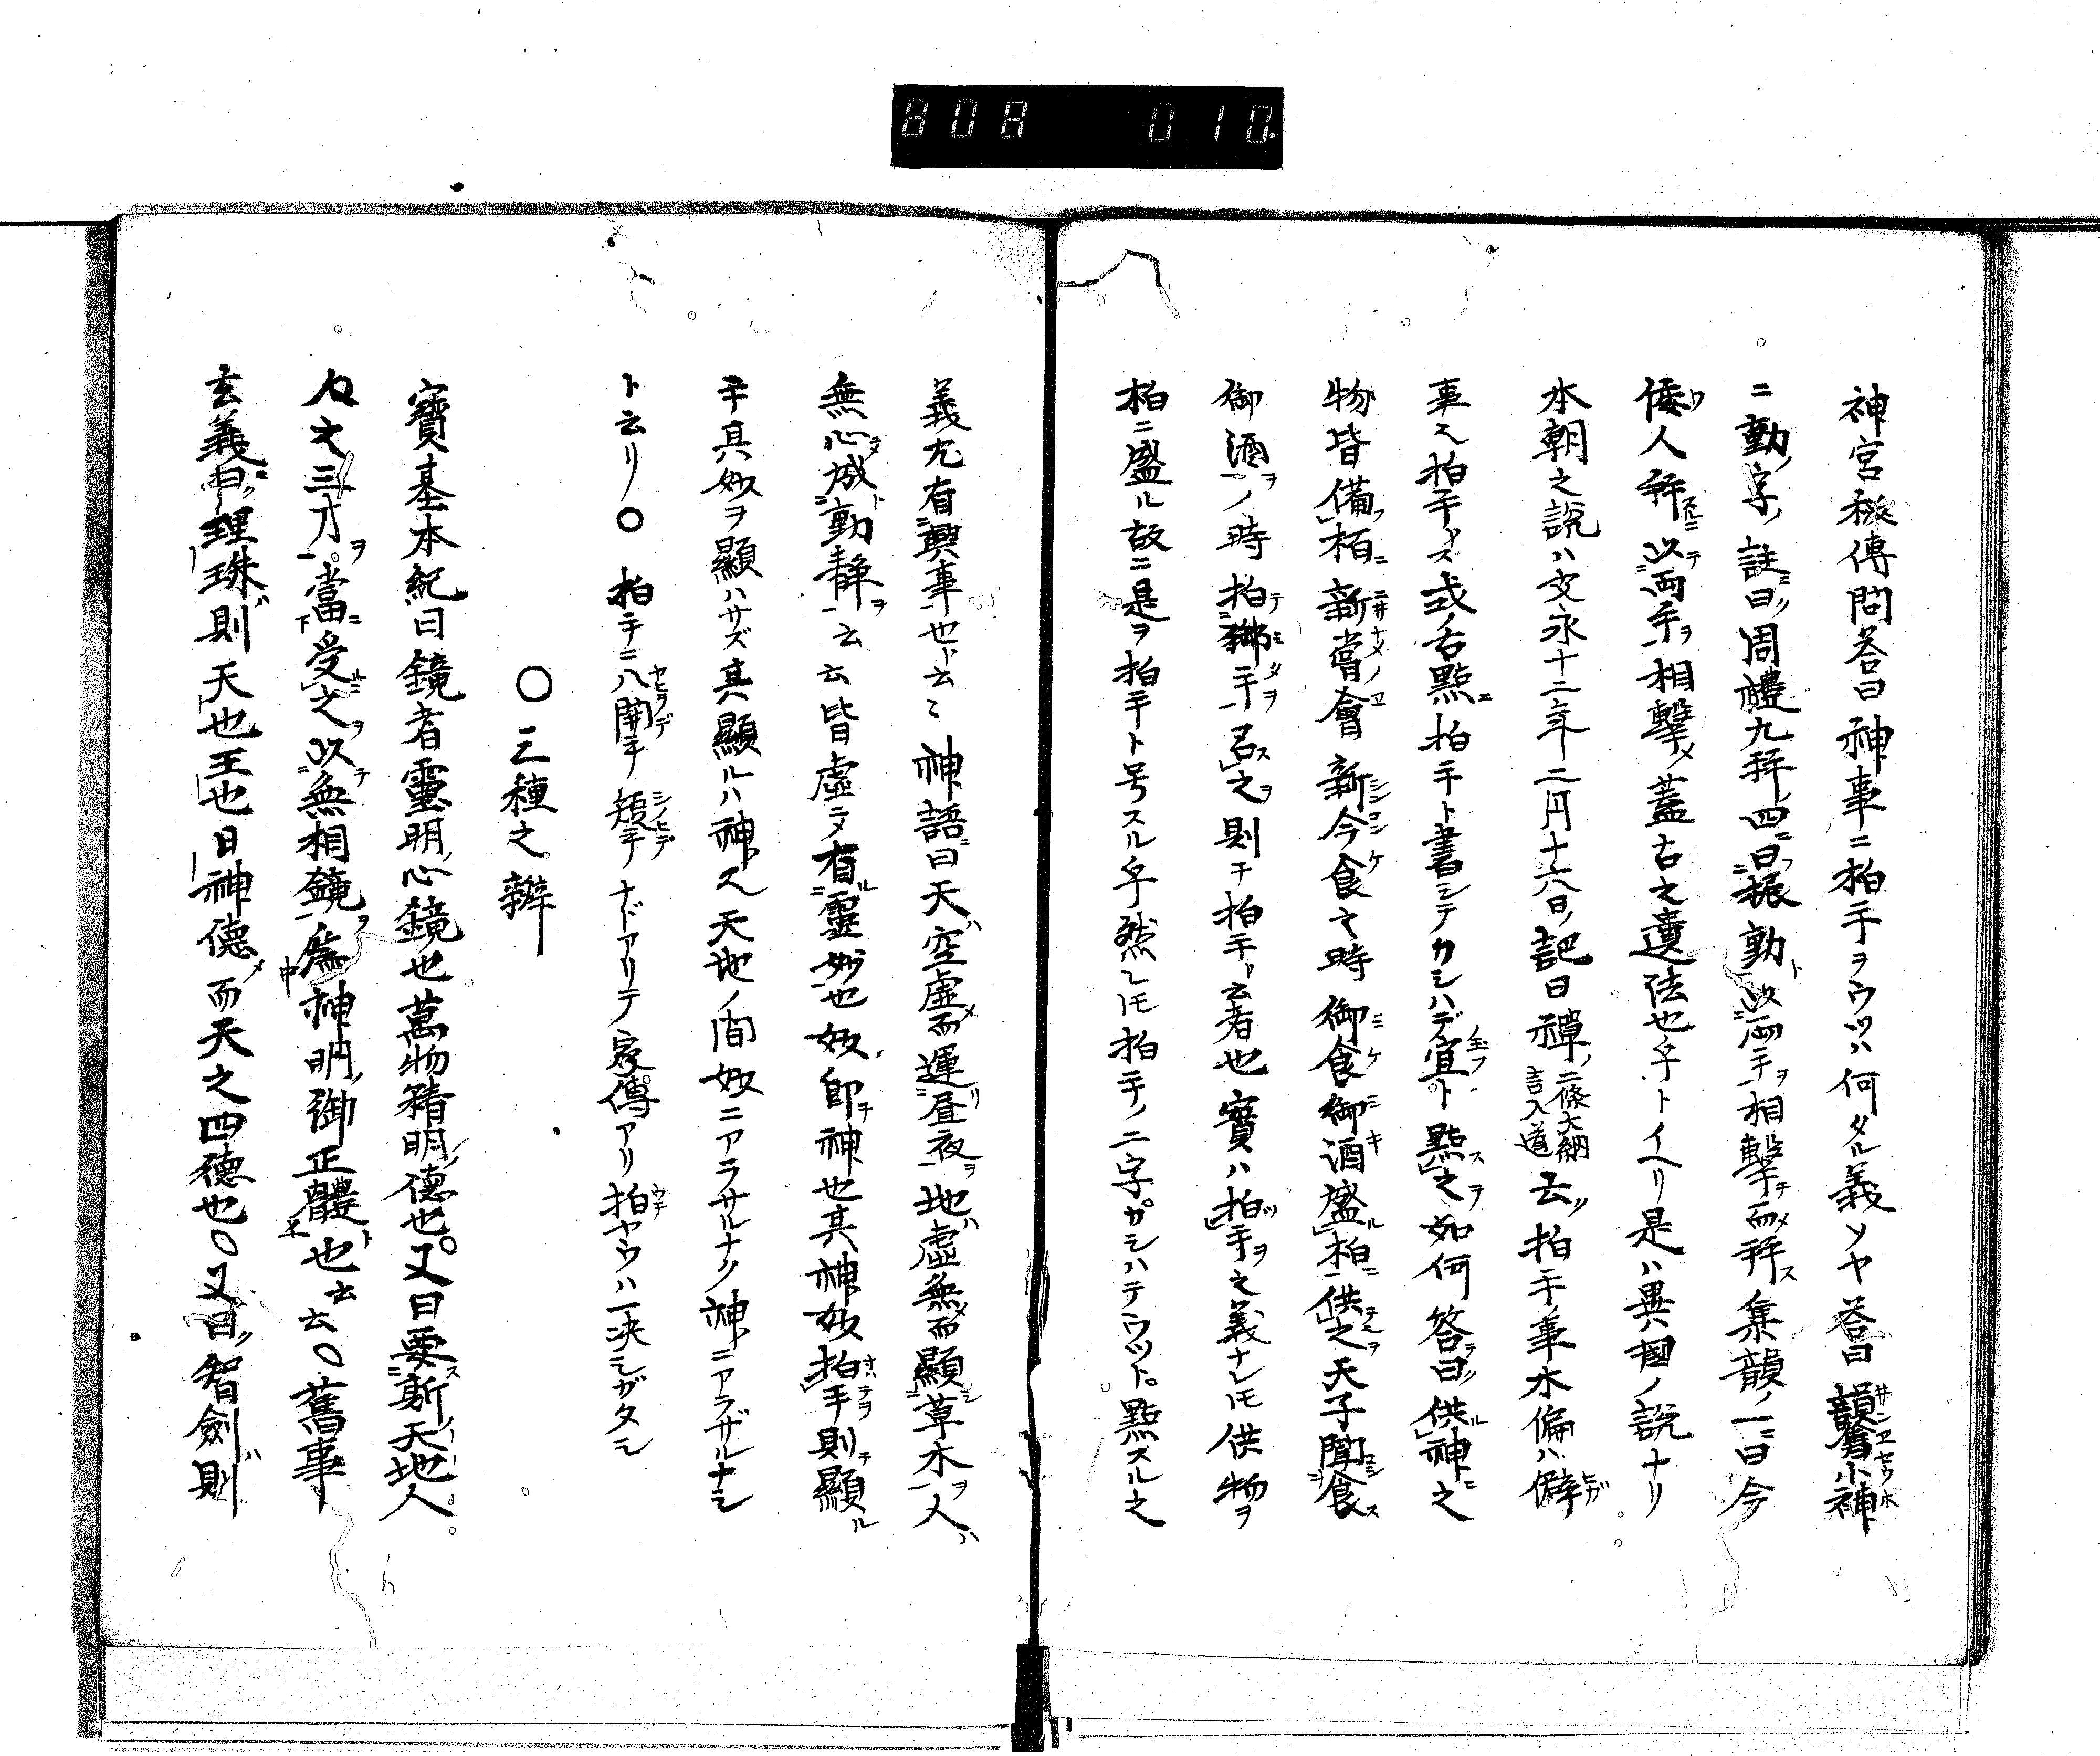 808 010
神宮秘傳問荅曰神事ニ拍手ヲウツハ何タル義ソヤ荅曰韻會小補
ニ動ノ字ノ註ニ曰ク周禮九拜四ニ曰振動ト以両手ヲ相撃テ而拜ス集韻ノ一ニ曰今
倭人拜スルニ以テ両手ヲ相撃ツ蓋古之遺法也ト云トイヘリ是ハ異國ノ説ナリ
本朝之説ハ文永十二年二月十六日ノ記曰禅二條大納言入道云ク拍手ノ事水偏ハ僻
事也拍手ノ右點ニ拍手ト書シテカシハデト點ス之ヲ如何答テ曰ク供ル神ニ之
物皆備フ栢ニ新嘗會新今食之時御食御酒盛ル柏ニ供之ヲ天子聞食ス
御酒ヲノ時拍テ御手ヲ召ス之ヲ則チ拍手ト云者也實ハ拍ツ手ヲ之義ナレ𪜈供物ヲ
柏ニ盛ル故ニ是ヲ拍手ト号スル乎然レ𪜈拍手ノ二字カシハテウツト點スル之
義尤有興事也ト云々神語ニ曰天ハ空虚ニメ而運リ昼夜ヲ地ハ虚無ニメ而顯シ草木ヲ人ハ
無心ニメ成ト動静ヲ云云皆虚ニメ有ル靈妙也妙即チ神也其神妙拍手ヲ則チ顯ル
手其妙ヲ顯ハサズ其顯ルハ神也天地ノ間妙ニアラサルナク神ニアラザルナシ
ト云リ〇拍手ニ八開手短手ナドアリテ家傳アリ拍ヤウハ一决シガタシ
〇三種之辨
寳基本紀曰鏡者靈明心鏡也萬物精明ノ德也又曰要ス斯ノ天地人
之三才ヲ當ニ受ルニ之ヲ以テ無相鏡ヲ為神明ノ御正體ト也云云〇舊事
玄義ニ曰ク理珠則バ天也王也日神德ニメ而天之四德也〇又曰ク智劍則バ